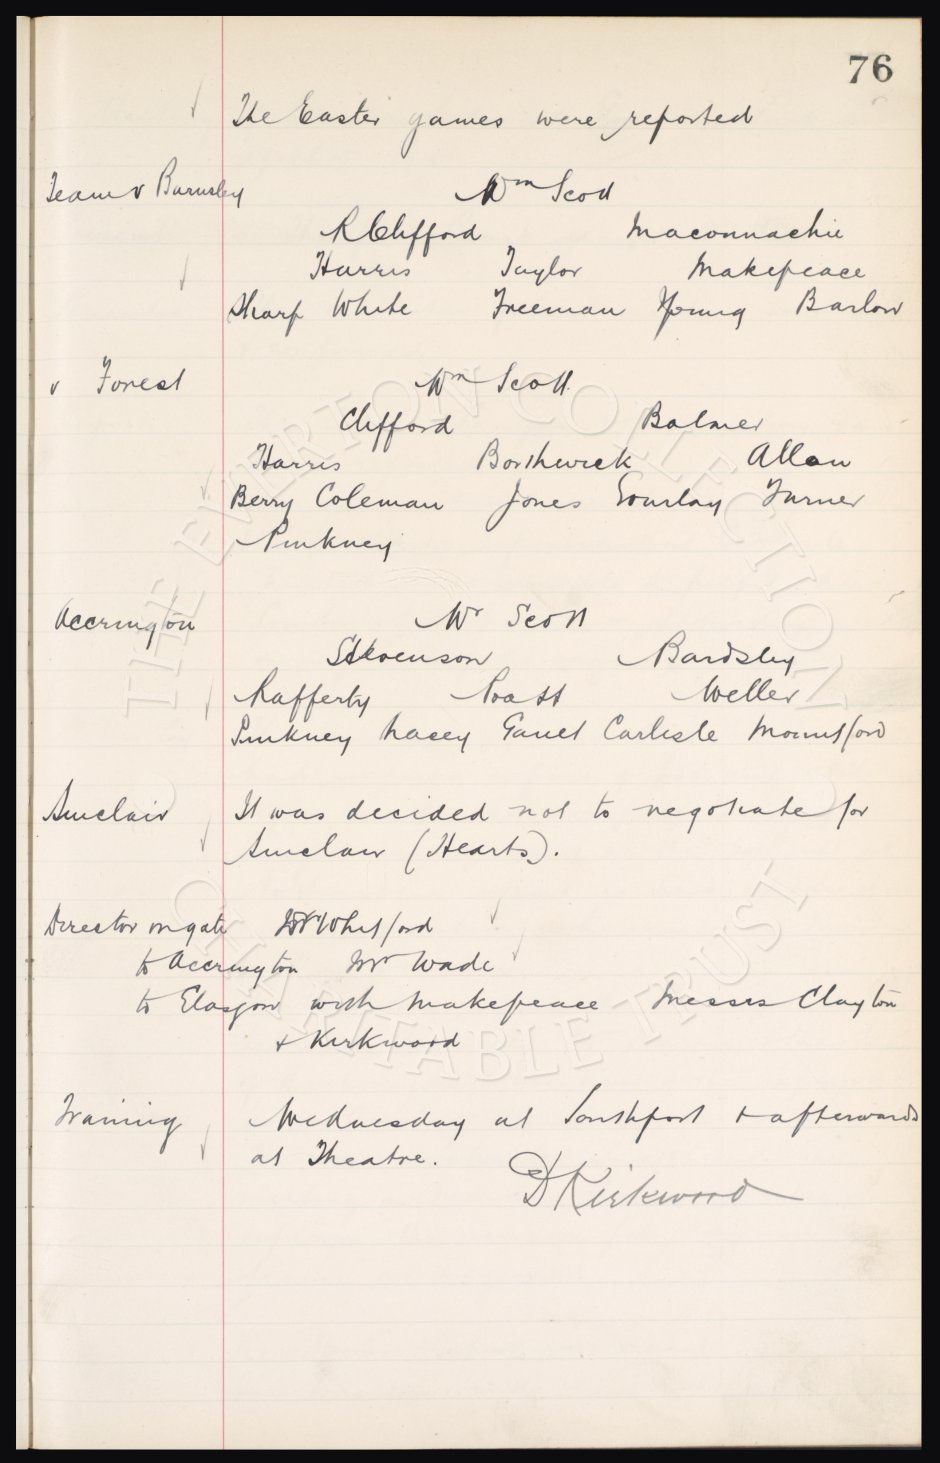 76
The Easter games were reported
Team v Barnsley Wm Scott
R Clifford Maconnachie
Harris Taylor Makepeace
Sharp White Freeman Young Barlow
v Forest Wm Scott
Clifford Balmer
Harris Borthwick Allan
Berry Coleman Jones Gourlay Turner
Pinkney
Accrington Scott
Stevenson Bardsley
Rafferty Pratt Weller
Pinkney Lacey Gault Carlisle Mountford
Sinclair It was decided not to negotiate for
Sinclair (Hearts).
Director on gate Dr Whitford
to Accrington Mr Wade
to Glasgow with Makepeace Messrs Clayton
+ Kirkwood
Training Wednesday at Southport + afterwards
at Theatre.
D Kirkwood
THE EVERTON COLLECTION
CHARITABLE TRUST